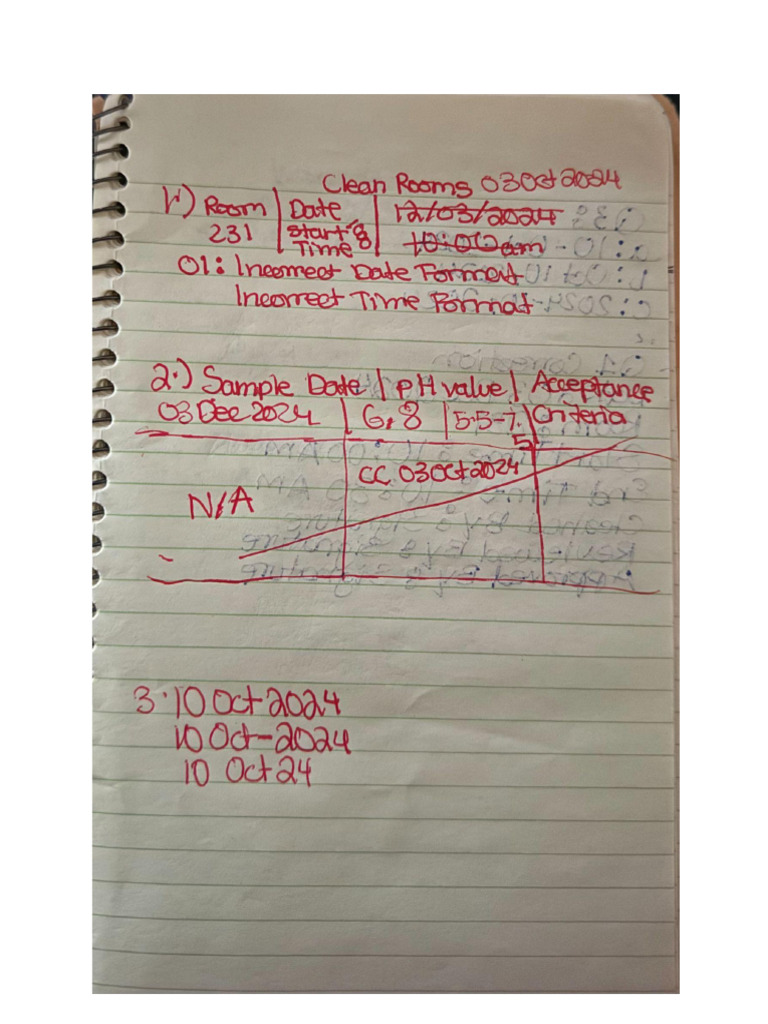 Clean Rooms 03Oct2024
1.) Room | Date | 12/03/2024
231 | Start Time: | 10:00am
01: Incorrect Date Format
Incorrect Time Format
2.) Sample Date | pH value | Acceptance
03 Dec 2024 | 6.8 | 5.5-7.5 | Criteria
CC 03Oct2024
N/A
3. 10 Oct 2024
10 Oct-2024
10 Oct 24